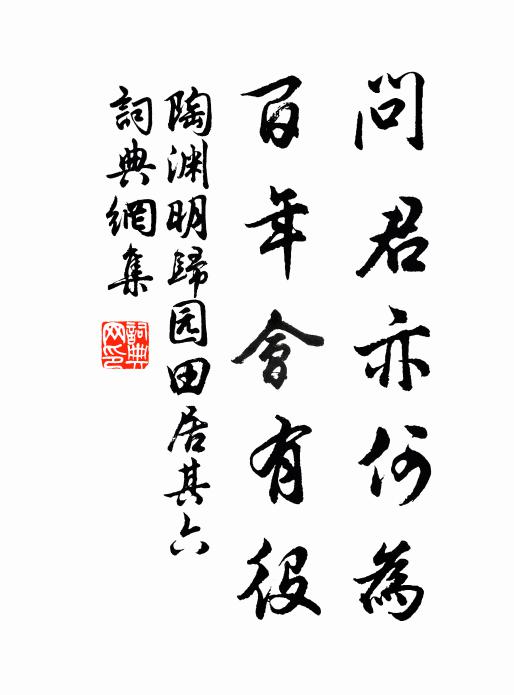 問君亦何為
百年會有役
陶渊明歸园田居其六
詞典網集
詞典網印